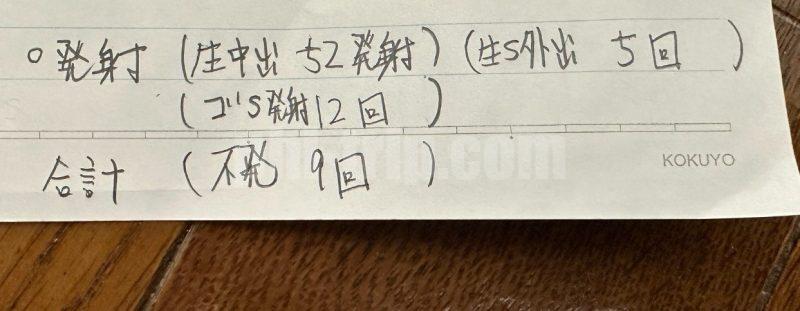 ○発射 (生中出 52発射) (生S外出 5回)
(ゴS発射12回)
合計 (不発 9回)
KOKUYO